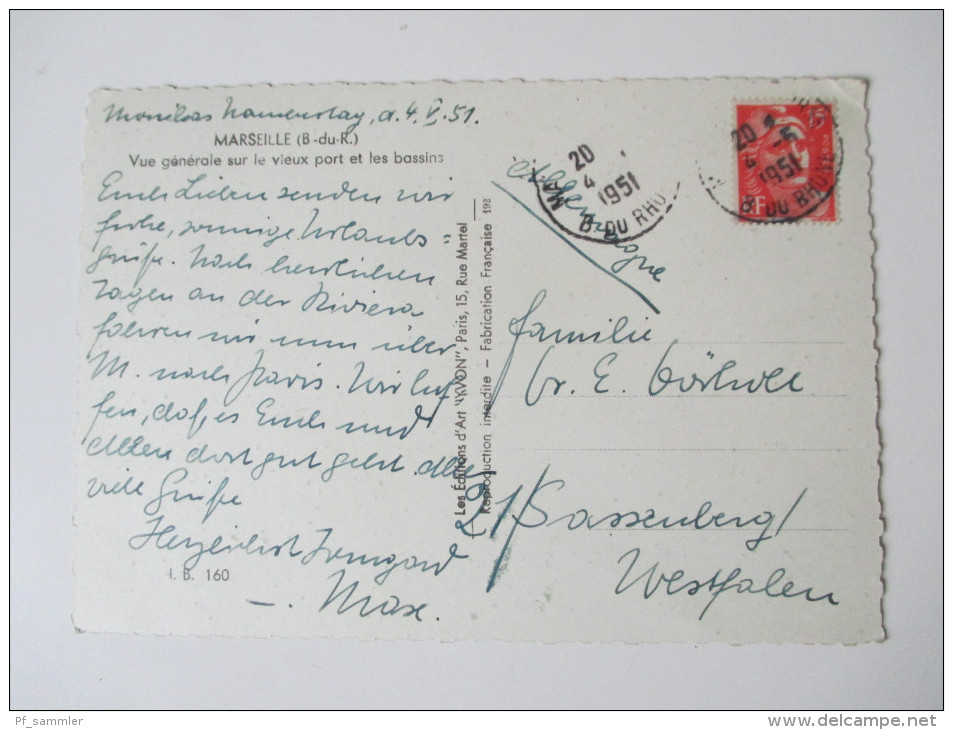 a. 4. V. 51.
MARSEILLE (B-du-R.)
Vue générale sur le vieux port et les bassins
Euch Lieben senden wir
frohe, sonnige Urlaubs=
grüße. Nach herrlichen
Tagen an der Riviera
fahren wir nun über
M. nach Paris. Wir hof
fen, daß es Euch und
Allen dort gut geht. Alle
viele Grüße
Herzlichst Irmgard
I. B. 160
–. Max.
Les Editions d'Art "YVON", Paris, 15, Rue Martel
Reproduction interdite – Fabrication Française
Allemagne
20
4
1951
B. DU RHO
20
4-5
1951
B. DU RHONE
15
RF
Familie
Dr. E.
21/Sassenberg/
Westfalen
Pf_sammler
www.delcampe.net